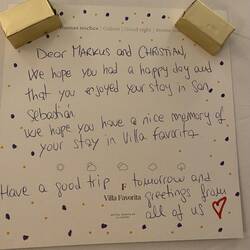 Dear Markus and Christian,
We hope you had a happy day and
that you enjoyed your stay in San
Sebastian
We hope you have a nice memory of
your stay in Villa Favorita
Have a good trip tomorrow and
Villa Favorita
greetings from
all of us